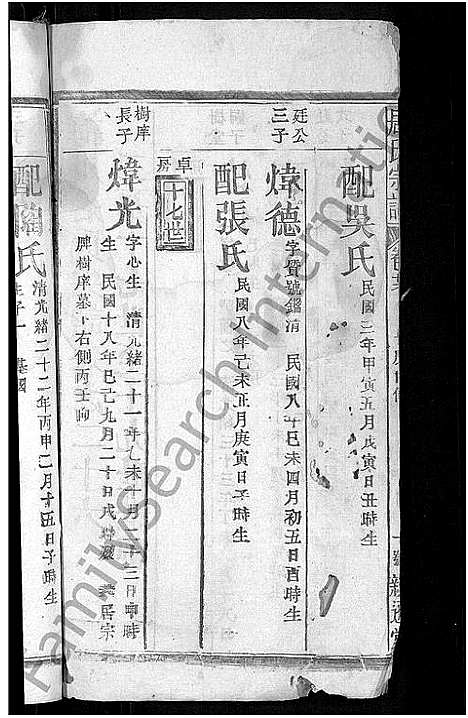 周氏宗譜
配吳氏 民國三年甲寅五月戊寅日丑時生
廷公三子
煒德 字賓號鑑清 民國八年己未四月初五日酉時生
配張氏 民國八年己未正月庚寅日子時生
卓房
十七世
樹庠長子
煒光 字心生 清光緒二十一年乙未十月二十三日申時
生 民國十八年己巳九月二十日戌時歿 葬居宗
脾樹庠墓下右側丙壬向
氏 清光緒二十二年丙申二月十五日子時生
familysearch International